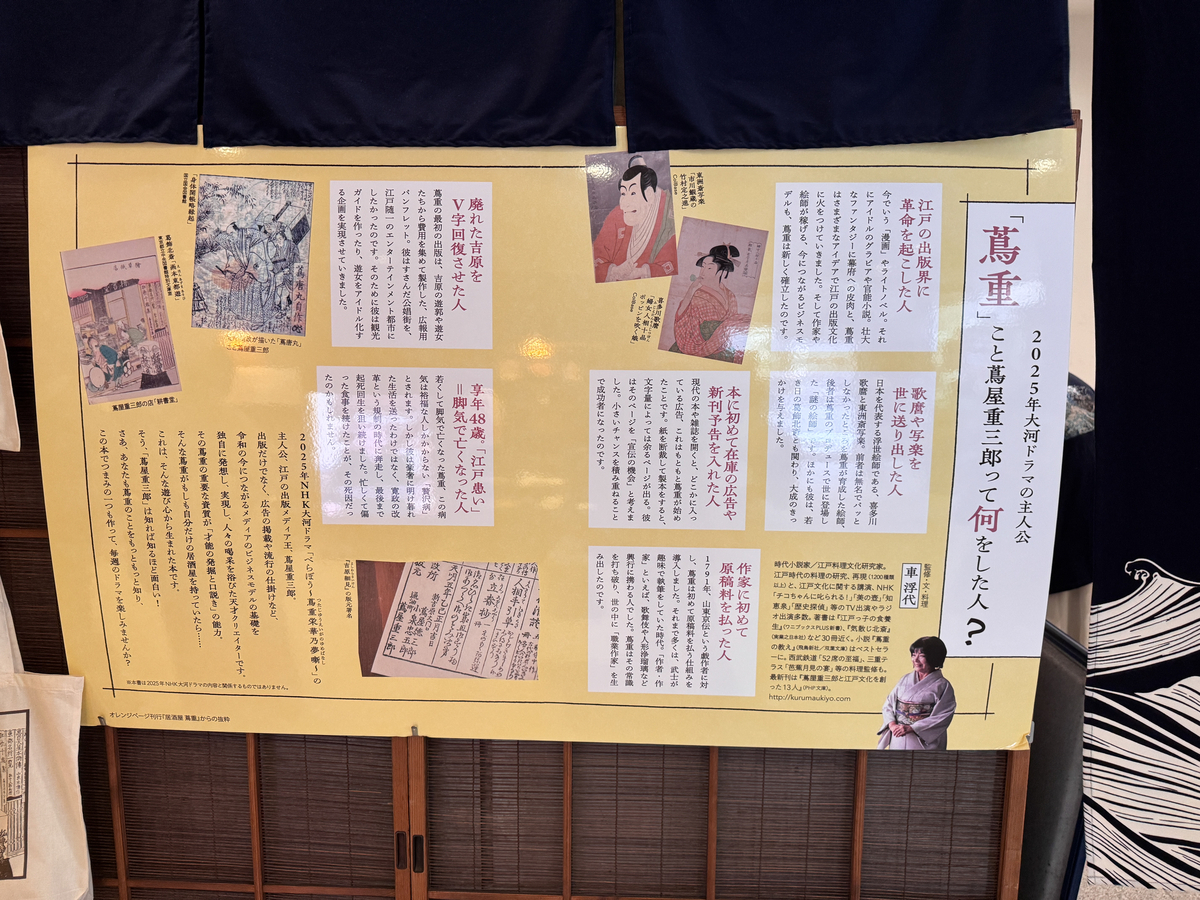 2025年大河ドラマの主人公
「蔦重」こと蔦屋重三郎って何をした人?
監修・文・料理
車 浮代
時代小説家/江戸料理文化研究家。
江戸時代の料理の研究、再現(1200種類
以上)と、江戸文化に関する講演、NHK
「チコちゃんに叱られる!」「美の壺」「知
恵泉」「歴史探偵」等のTV出演やラジ
オ出演多数。著書は『江戸っ子の食養
生』(ワニブックスPLUS新書)、『気散じ北斎』
(実業之日本社)など30冊近く。小説『蔦重
の教え』(飛鳥新社/双葉文庫)はベストセラ
ーに。西武鉄道「52席の至福」、三重テ
ラス「芭蕉月見の宴」等の料理監修も。
最新刊は『蔦屋重三郎と江戸文化を創
った13人』(PHP文庫)。
http://kurumaukiyo.com
江戸の出版界に
革命を起こした人
今でいう「漫画」やライトノベル。それ
にアイドルのグラビアや官能小説。壮大
なファンタジーに幕府への皮肉と、蔦重
はさまざまなアイデアで江戸の出版文化
に火をつけていきました。そして作家や
絵師が稼げる、今につながるビジネスモ
デルも、蔦重は新しく確立したのです。
歌麿や写楽を
世に送り出した人
日本を代表する浮世絵師である、喜多川
歌麿と東洲斎写楽。前者は無名でパッと
しなかったところを蔦重が育成した絵師、
後者は蔦重のプロデュースで世に登場し
た「謎の絵師」です。ほかにも彼は、若
き日の葛飾北斎とも関わり、大成のきっ
かけを与えました。
東洲斎写楽
「市川鰕蔵の
竹村定之進」
ColBase
喜多川歌麿
「婦女人相十品
ポッピンを吹く娘」
ColBase
本に初めて在庫の広告や
新刊予告を入れた人
現代の本や雑誌を開くと、どこかに入っ
ている広告。これはもともと蔦重が始め
たことです。紙を断裁して製本をすると、
文字量によっては余るページが出る。彼
はそのページを「宣伝の機会」と考えま
した。小さいチャンスを積み重ねること
で成功者になったのです。
作家に初めて
原稿料を払った人
1791年、山東京伝という戯作者に対
し、蔦重は初めて原稿料を払う仕組みを
導入しました。それまで多くは、武士が
趣味で執筆をしていた時代。「作者・作
家」といえば、歌舞伎や人形浄瑠璃など
興行に携わる人でした。蔦重はその常識
を打ち破り、世の中に「職業作家」を生
み出したのです。
廃れた吉原を
V字回復させた人
蔦重の最初の出版は、吉原の遊郭や遊女
たちから費用を集めて製作した、広報用
パンフレット。彼はすさんだ公娼街を、
江戸随一のエンターテインメント都市に
したかったのです。そのために彼は観光
ガイドを作ったり、遊女をアイドル化す
る企画を実現させていきました。
享年48歳。「江戸患い」
=脚気で亡くなった人
若くして脚気で亡くなった蔦重。この病
気は裕福な人しかかからない「贅沢病」
とされます。しかし彼は豪奢に明け暮れ
た生活を送ったわけではなく、寛政の改
革という規制の時代に奔走し、最後まで
起死回生を狙い続けました。忙しくて偏
った食事を続けたことが、その死因だっ
たのかもしれません。
「吉原細見」の版元署名
「身体開帳略縁起」
国立国会図書館
が描いた「蔦唐丸」
こと蔦屋重三郎
葛飾北斎「画本東都遊」
蔦屋重三郎の店「耕書堂」
2025年NHK大河ドラマ「べらぼう〜蔦重栄華乃夢噺〜」の
主人公、江戸の出版メディア王、蔦屋重三郎。
出版だけでなく、広告の掲載や流行の仕掛けなど、
令和の今につながるメディアのビジネスモデルの基礎を
独自に発想し、実現し、人々の喝采を浴びた天才クリエイターです。
その蔦重の重要な資質が「才能の発掘と口説き」の能力。
そんな蔦重がもしも自分だけの居酒屋を持っていたら……
これは、そんな遊び心から生まれた本です。
そう、「蔦屋重三郎」は知れば知るほど面白い!
さあ、あなたも蔦重のことをもっともっと知り
この本でつまみの一つも作って、毎週のドラマを楽しみませんか?
※本書は2025年NHK大河ドラマの内容と関係するものではありません。
オレンジページ刊行『居酒屋 蔦重』からの抜粋